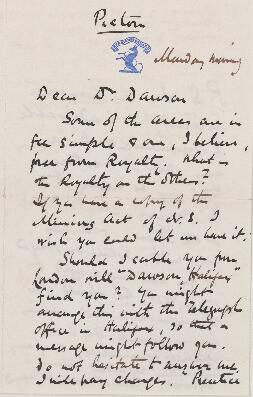 Pictou
Monday evening
Dear Dr. Dawson
Some of the areas are in
fee simple & are, I believe,
free from Royalty. What is
the Royalty on the others?
If you have a copy of the
Mining Act of N.S. I
wish you could let me have it.
Should I cable you from
London will "Dawson, Halifax"
find you? You might
arrange this with the Telegraph
office in Halifax, so that a
message might follow you.
Do not hesitate to answer me
I will pay charges.